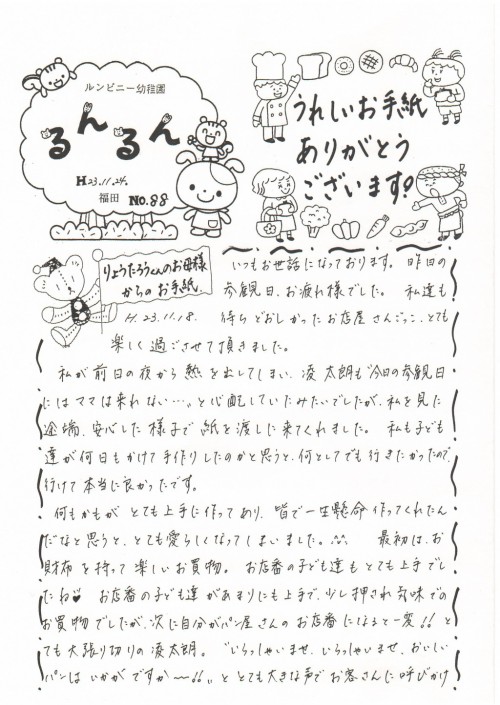 ルンビニー幼稚園
るんるん
H23.11.24.
福田 No.88
うれしいお手紙
ありがとう
ございます!
りょうたろうくんのお母様
からのお手紙
H.23.11.18.
いつもお世話になっております。昨日の
参観日、お疲れ様でした。私達も
待ちどおしかったお店屋さんごっこ、とても
楽しく過ごさせて頂きました。
私が前日の夜から熱を出してしまい、凌太朗も"今日の参観日
にはママは来れない…"と心配していたみたいでしたが、私を見た
途端、安心した様子で紙を渡しに来てくれました。私も子ども
達が何日もかけて手作りしたのかと思うと、何としてでも行きたかったので
行けて本当に良かったです。
何もかもが とても上手に作ってあり、皆で一生懸命作ってくれたん
だなと思うと、とても愛らしくなってしまいました。 最初は、お
財布を持って楽しいお買物。お店番の子ども達もとても上手でし
たね♥ お店番の子ども達があまりにも上手で、少し押され気味での
お買物でしたが、次に自分がパン屋さんのお店番になると一変!! と
ても大張り切りの凌太朗。"いらっしゃいませ、いらっしゃいませ、おいしい
パンは いかがですか〜!!"と とても大きな声でお客さんに呼びかけ